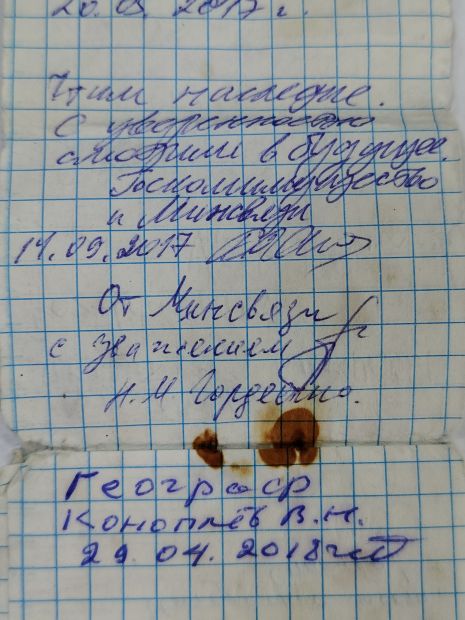 20.08.2017 г.
Чтим наследие.
С уверенностью
смотрим в будущее.
Госкомимущество
и Минсвязи
14.09.2017
От Минсвязи
с уважением
Н.М Гордеенко.
Географ
Коноплёв В.Н.
29.04.2018